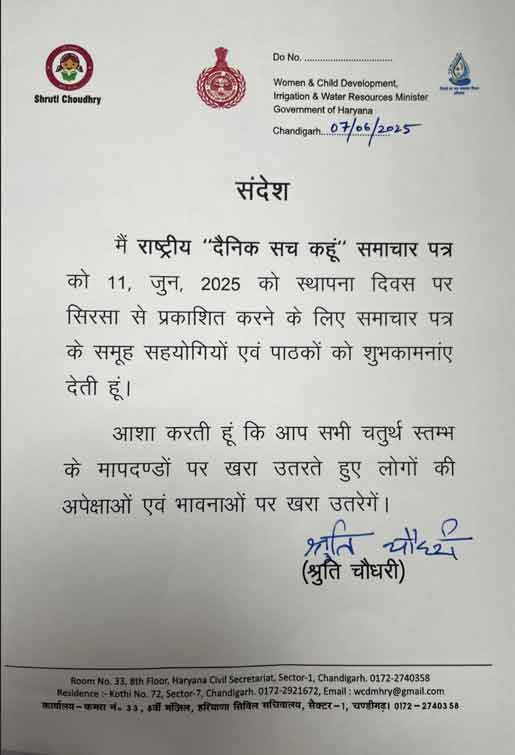 Shruti Choudhry
Do No. ..................................
Women & Child Development,
Irrigation & Water Resources Minister
Government of Haryana
Chandigarh....07/06/2025
संदेश
मैं राष्ट्रीय "दैनिक सच कहूं" समाचार पत्र
को 11, जुन, 2025 को स्थापना दिवस पर
सिरसा से प्रकाशित करने के लिए समाचार पत्र
के समूह सहयोगियों एवं पाठकों को शुभकामनांए
देती हूं।
आशा करती हूं कि आप सभी चतुर्थ स्तम्भ
के मापदण्डों पर खरा उतरते हुए लोगों की
अपेक्षाओं एवं भावनाओं पर खरा उतरेगें।
श्रुति चौधरी
(श्रुति चौधरी)
Room No. 33, 8th Floor, Haryana Civil Secretariat, Sector-1, Chandigarh. 0172-2740358
Residence :- Kothi No. 72, Sector-7, Chandigarh. 0172-2921672, Email : wcdmhry@gmail.com
कार्यालय – कमरा नं. 33, 8वीं मंजिल, हरियाणा सिविल सचिवालय, सैक्टर-1, चण्डीगढ़। 0172-2740358